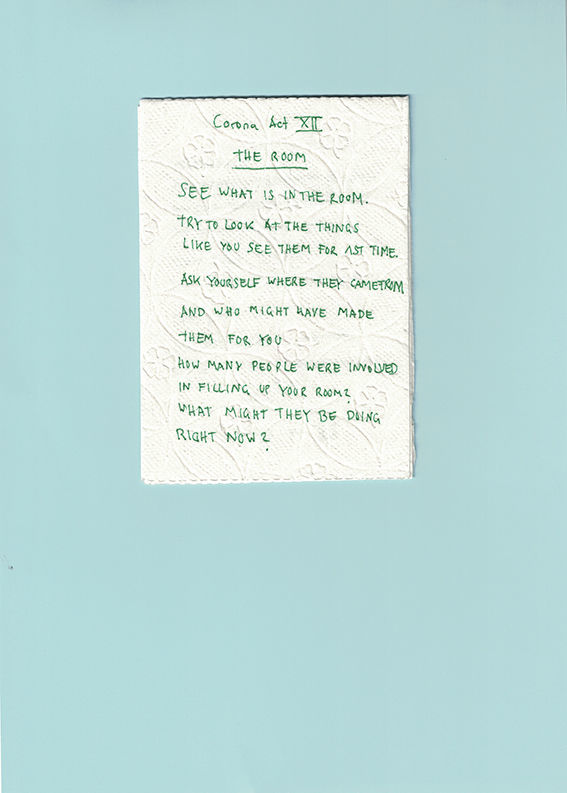 Corona Act XII
THE ROOM
SEE WHAT IS IN THE ROOM.
TRY TO LOOK AT THE THINGS
LIKE YOU SEE THEM FOR 1ST TIME.
ASK YOURSELF WHERE THEY CAME FROM
AND WHO MIGHT HAVE MADE
THEM FOR YOU
HOW MANY PEOPLE WERE INVOLVED
IN FILLING UP YOUR ROOM?
WHAT MIGHT THEY BE DOING
RIGHT NOW?